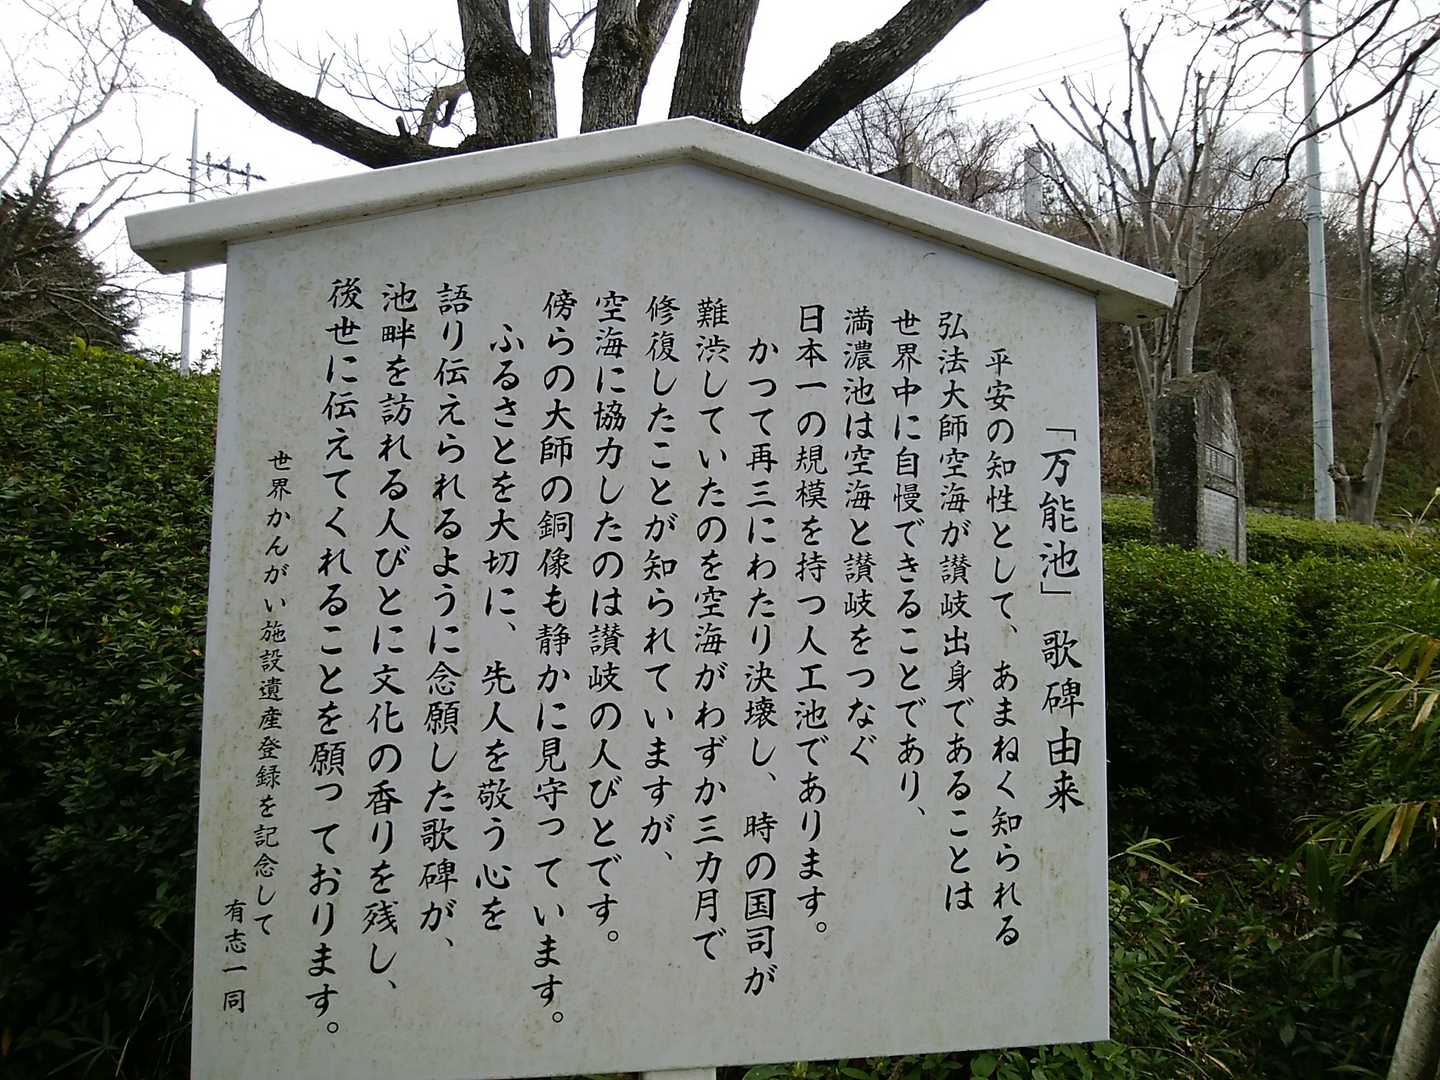 「万能池」 歌碑由来
平安の知性として、あまねく知られる
弘法大師空海が讃岐出身であることは
世界中に自慢できることであり、
満濃池は空海と讃岐をつなぐ
日本一の規模を持つ人工池であります。
かつて再三にわたり決壊し、時の国司が
難渋していたのを空海がわずか三カ月で
修復したことが知られていますが、
空海に協力したのは讃岐の人びとです。
傍らの大師の銅像も静かに見守っています。
ふるさとを大切に、先人を敬う心を
語り伝えられるように念願した歌碑が、
池畔を訪れる人びとに文化の香りを残し、
後世に伝えてくれることを願っております。
世界かんがい施設遺産登録を記念して
有志一同